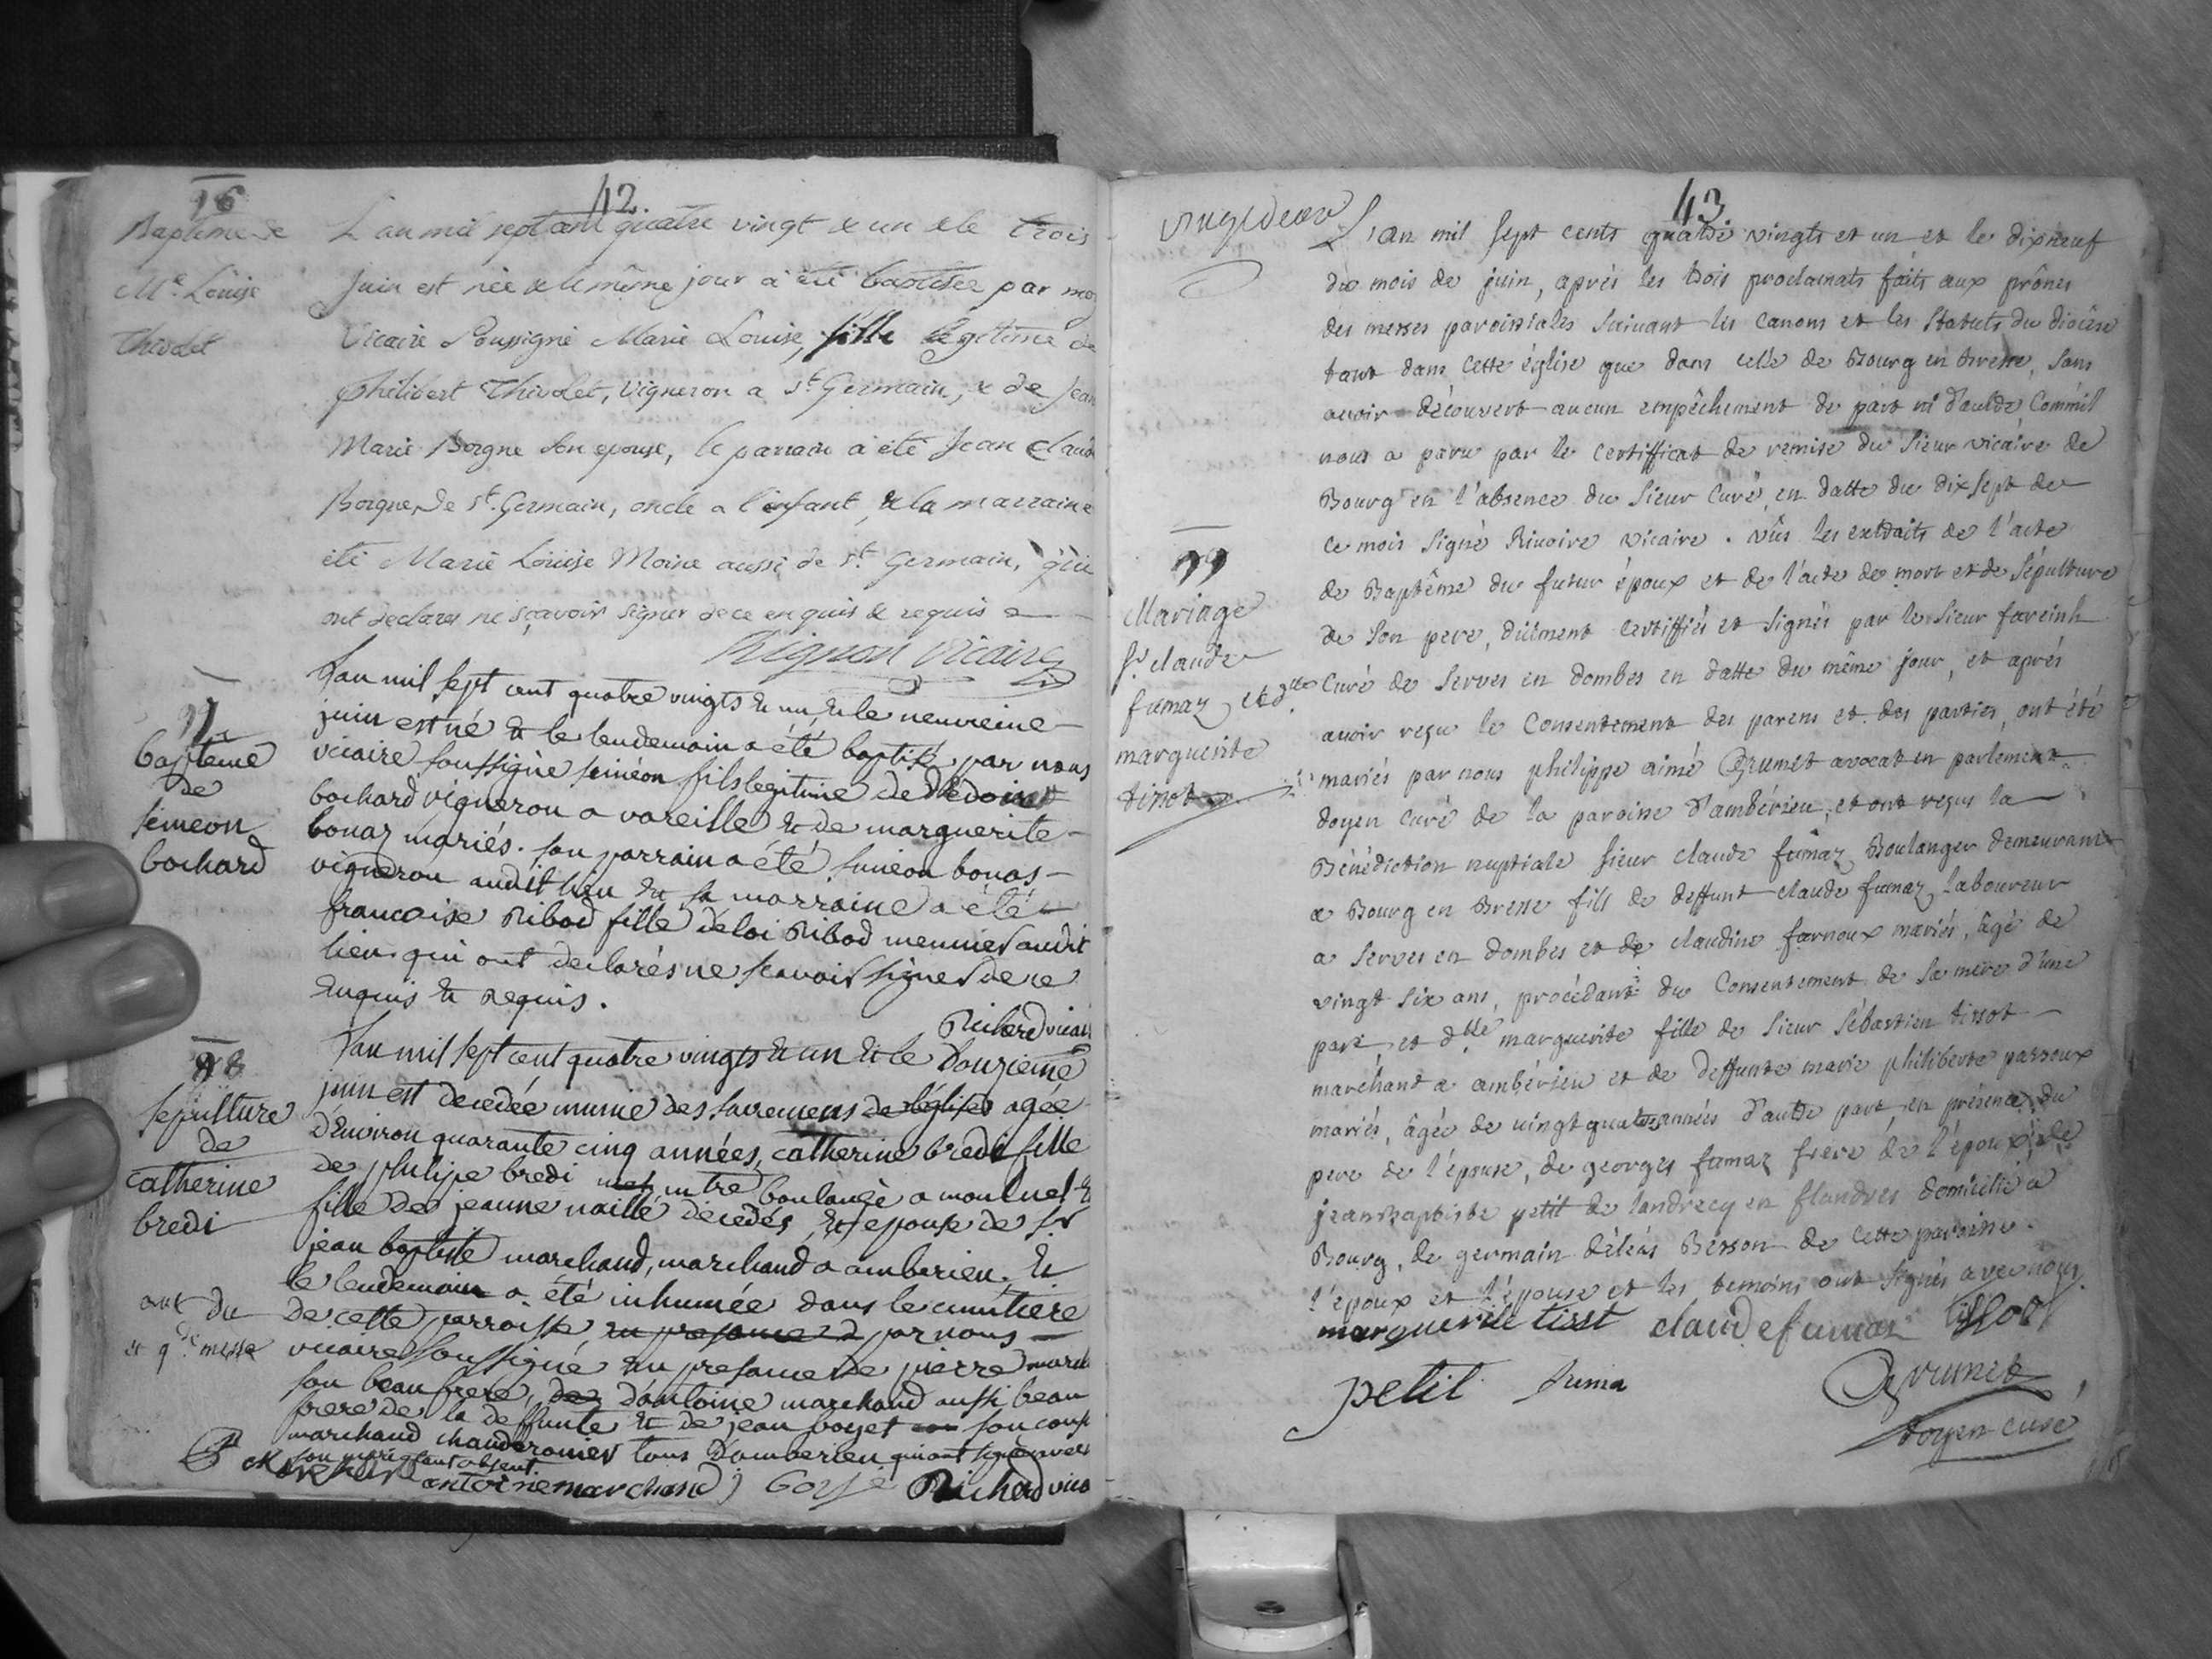 42.
76
Baptême de
Me. Louise
Thivolet
L'an mil sept cent quatre vingt & un & le trois
Juin est née & le même jour a été baptisée par moy
Vicaire Soussigné Marie Louise, fille legitime de
Philibert Thivolet, Vigneron a St. Germain, & de Jean
Marie Borgne son epouse, le parrain a été Jean Claude
Borgne, de St. Germain, oncle a l'enfant, & la marraine
été Marie Louise Moine aussi de St. Germain, qui
ont declarer ne sçavoir signer de ce enquis & requis
Vicaire
77
baptême
de
simeon
bochard
L'an mil sept cent quatre vingts & un, & le neuvieme
juin est né & le lendemain a été baptisé, par nous
vicaire soussigné simeon fils legitime de
bochard vigneron a vareille & de marguerite
bonaz mariés. son parrain a été simeon bonas
vigneron audit lieu & sa marraine a été
francoise Ribod fille deloi Ribod meunier audit
lieu qui ont declarés ne scavoir signer de ce
enquis & requis.
Richerd vicair
78
sepulture
de
catherine
bredi
L'an mil sept cent quatre vingts & un & le Douzieme
juin est decedée munie des sacremens de l'église agée
d'environ quarante cinq années, catherine bredi fille
de philipe bredi mtre boulangé a montluel &
fille de jeanne naillé decedés, & epouse de sr
jean baptiste marchand, marchand a amberieu. &
le lendemain a été inhumée dans le cimetiere
de cette parroisse en presence d par nous
vicaire soussigné en presence de pierre march
son beau frere, de d'antoine marchand aussi beau
frere de la deffunte & de jean boyet son cousi
marchand chanderonier tous d'amberieu qui ont signé avec
son mari etant absent
antoine marchand Richerd vica
43.
L'an mil sept cents quatre vingts et un et le dixneuf
du mois de juin, après les trois proclamats faits aux prônes
des messes paroissiales suivant les canons et les statuts du diocèse
tant dans cette église que dans celle de Bourg en bresse, sans
avoir découvert aucun empêchement de part ni d'autre Comm'il
nous a paru par le certifficat de remise du sieur vicaire de
Bourg en l'absence du sieur Curé, en datte du dix sept de
ce mois signé Rivoire vicaire. vûs les extraits de l'acte
de Baptême du futur époux et de l'acte de mort et de sépulture
de son pere, duëment certiffiés et signés par le sieur fareinh
Curé de serves en dombes en datte du même jour, et après
avoir reçu le Consentement des parens et des parties, ont été
mariés par nous philippe aimé Grumet avocat en parlement
doyen curé de la paroisse d'ambérieu, et ont reçus la
Bénédiction nuptiale sieur claude fumaz Boulanger demeurant
a Bourg en Bresse fils de deffunt claude fumaz laboureur
a serves en dombes et de claudine farnoux mariés, âgé de
vingt six ans, procédant du Consentement de sa mere d'une
part, et dlle marguerite fille de sieur sébastien tissot
marchand a ambérieu et de deffunte marie philiberte passoux
mariés, âgée de vingt quatre années d'autre part, en présence du
pere de l'épouse, de georges fumaz frere de l'époux, de
jean baptiste petit de landrecy en flandres domicilié a
Bourg, de germain Besson de cette paroisse.
l'époux et l'épouse et les temoins ont signés avec nous.
79
Mariage
sr. claude
fumaz et dlle
marguerite
tissot
marguerite tisst claude fumaz tissot
petit fuma Grumet
doyen curé